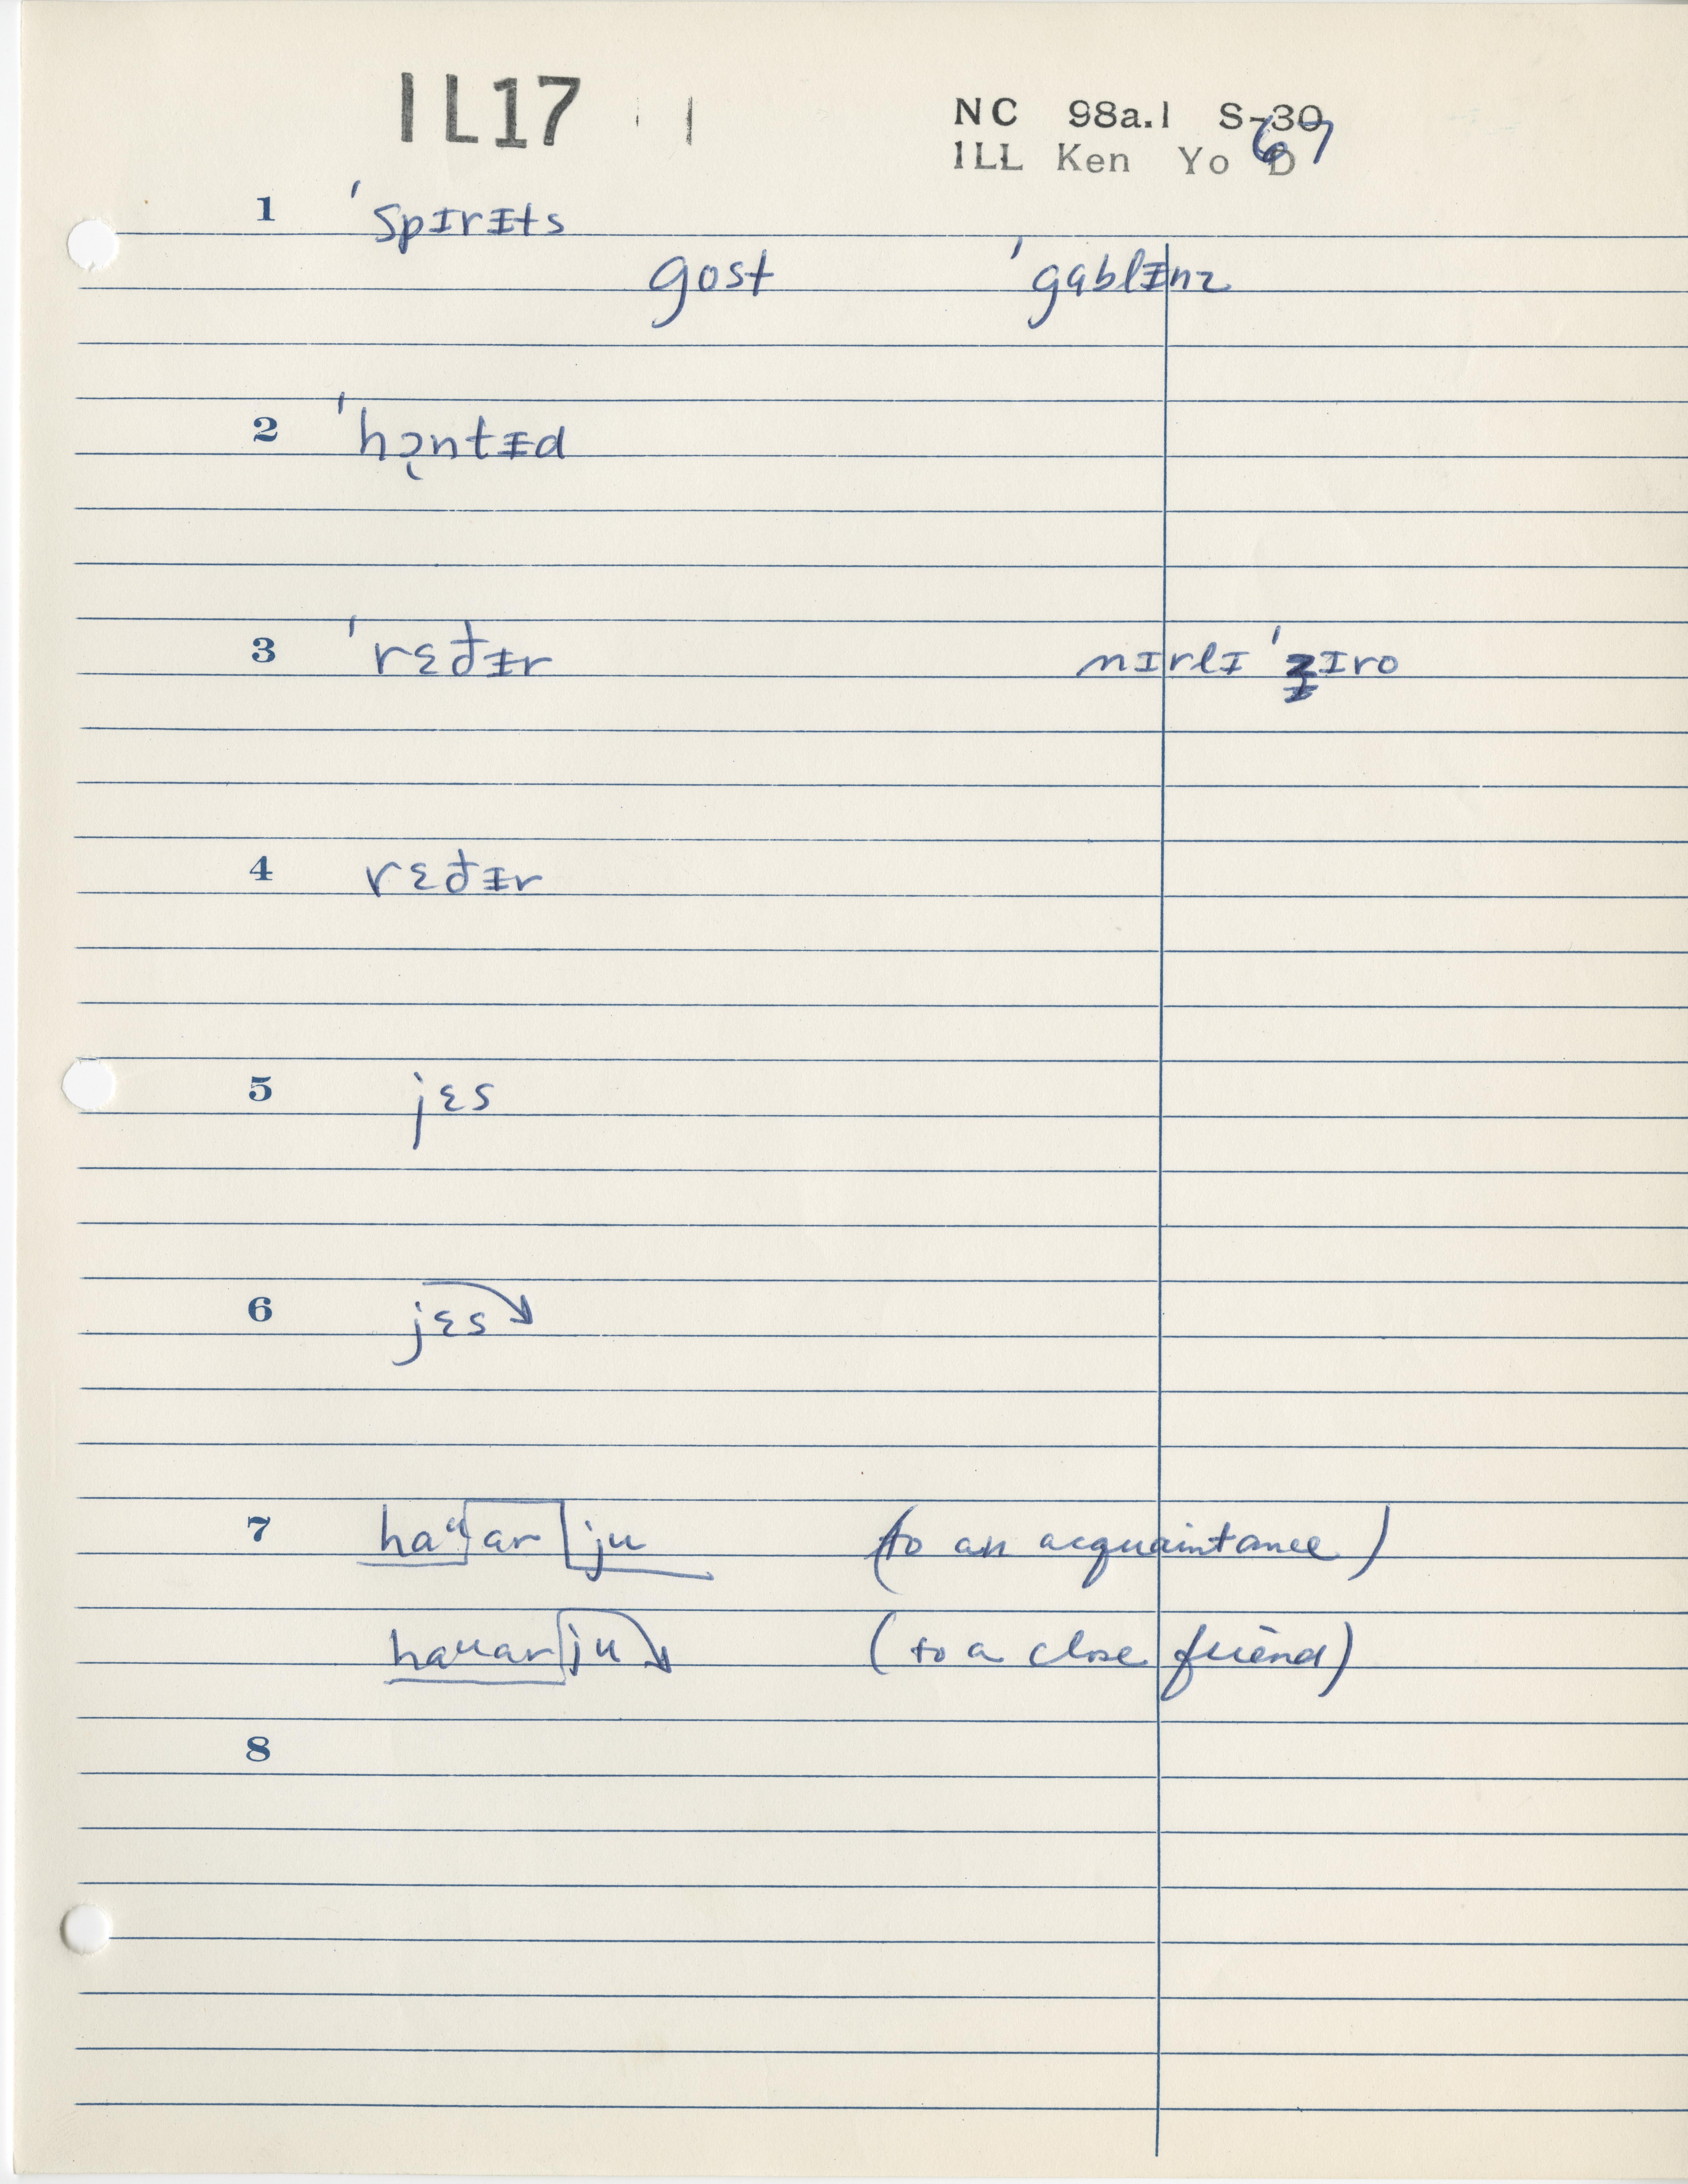 IL17 NC 98a.1 S-30
ILL Ken Yo D 67
1 ˈspɪrᵻts
gost ˈgɑblᵻnz
2 ˈhɔ̨ntᵻd
3 ˈrɛđᵻr nɪrlɪ ˈzɪro
4 rɛđᵻr
5 jɛs
6 jɛs ↘
7 haᵘ ar ju (to an acquaintance)
haᵘar ju ↘ (to a close friend)
8